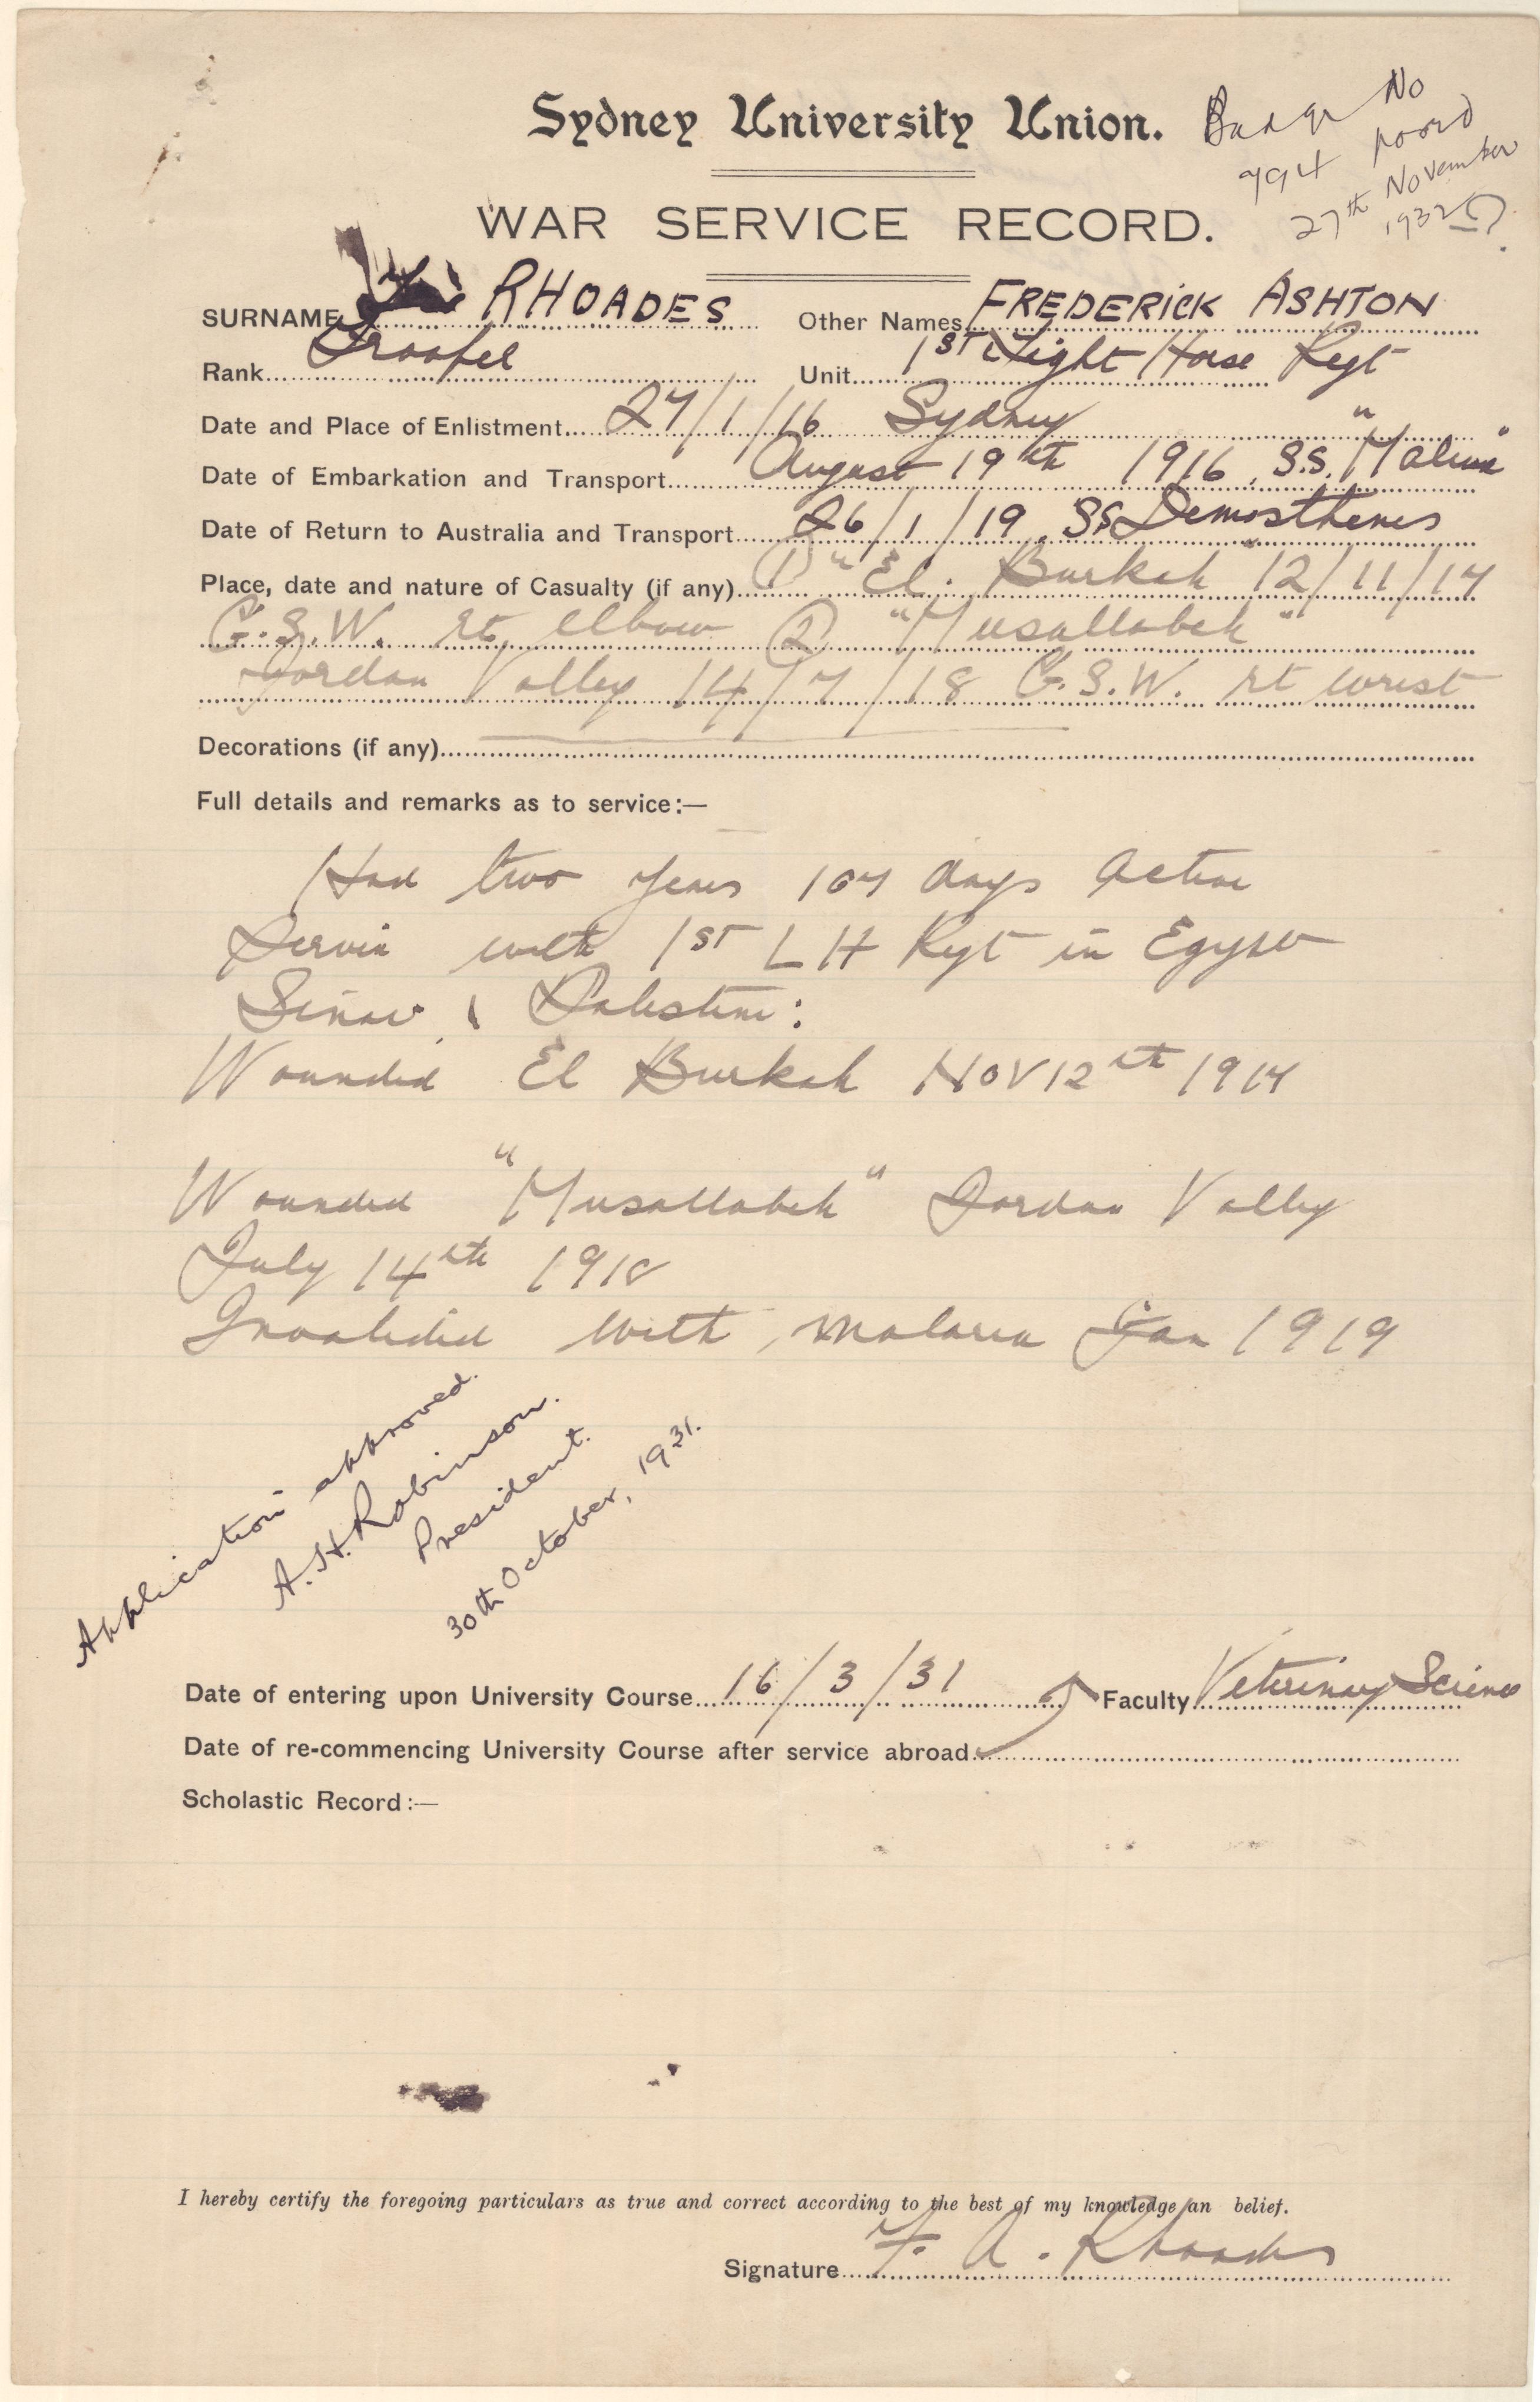 Sydney University Union.
Badge No
794
27th November
1932
WAR SERVICE RECORD.
SURNAME RHOADES Other Names FREDERICK ASHTON
Rank Trooper Unit 1ST Light Horse Regt
Date and Place of Enlistment 27/1/16 Sydney
Date of Embarkation and Transport August 19th 1916. S.S. "Malwa"
Date of Return to Australia and Transport 26/1/19. SS Demosthenes
Place, date and nature of Casualty (if any) (1) "El. Burkah" 12/11/17
G.S.W. Rt. elbow (2) "Musallabeh"
Jordan Valley 14/7/18 G.S.W. rt wrist
Decorations (if any)
Full details and remarks as to service:—
Had two years 107 days active
Service with 1ST L H Regt in Egypt
Sinai & Palestine:
Wounded El Burkah Nov 12th 1917
Wounded "Musallabeh" Jordan Valley
July 14th 1918
Invalided with malaria Jan 1919
Application approved.
A.H. Robinson.
President.
30th October, 1931.
Date of entering upon University Course 16/3/31 Faculty Veterinary Science
Date of re-commencing University Course after service abroad
Scholastic Record:—
I hereby certify the foregoing particulars as true and correct according to the best of my knowledge an belief.
Signature F. A. Rhoades